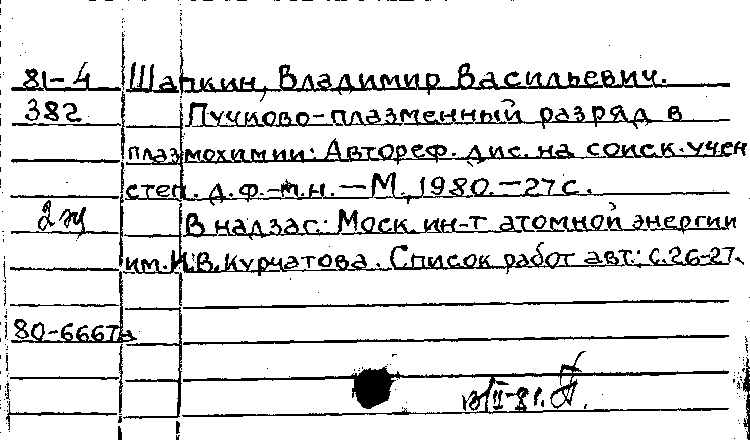 81-4 Шапкин, Владимир Васильевич.
382 Пучково-плазменный разряд в
плазмохимии: Автореф. дис. на соиск. учен
степ. д. ф.-м.н. — М., 1980. — 27 с.
В надзаг.: Моск. ин-т атомной энергии
им. И.В. Курчатова. Список работ авт.: с. 26-27.
80-6667а